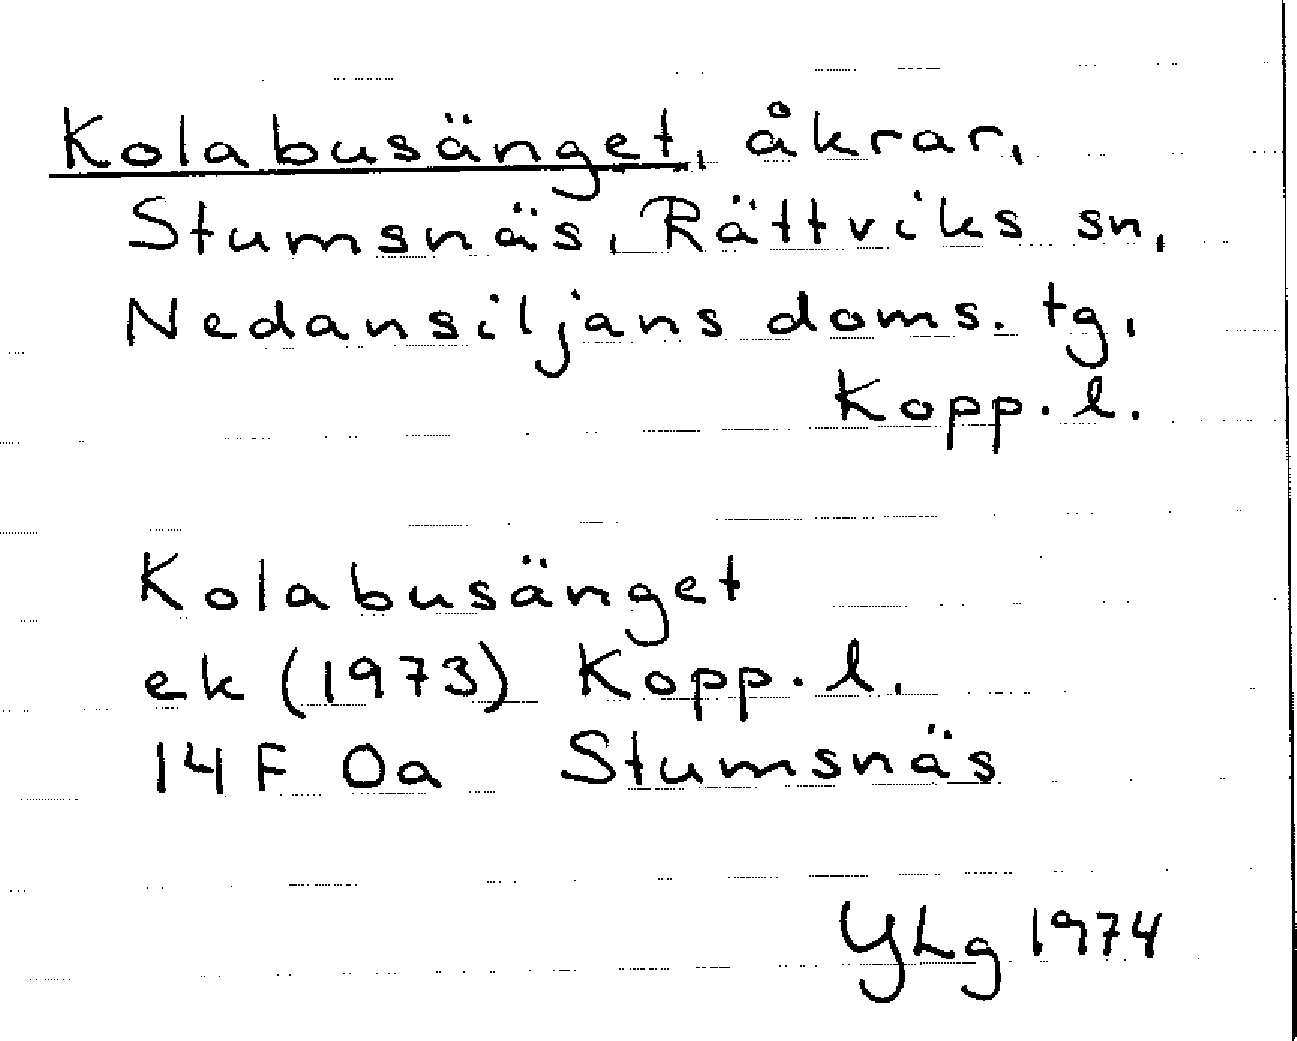 Kolabusänget, åkrar,
Stumsnäs, Rättviks sn,
Nedansiljans doms. tg,
Kopp. l.
Kolabusänget
ek (1973) Kopp. l.
14F 0a Stumsnäs
YLg 1974